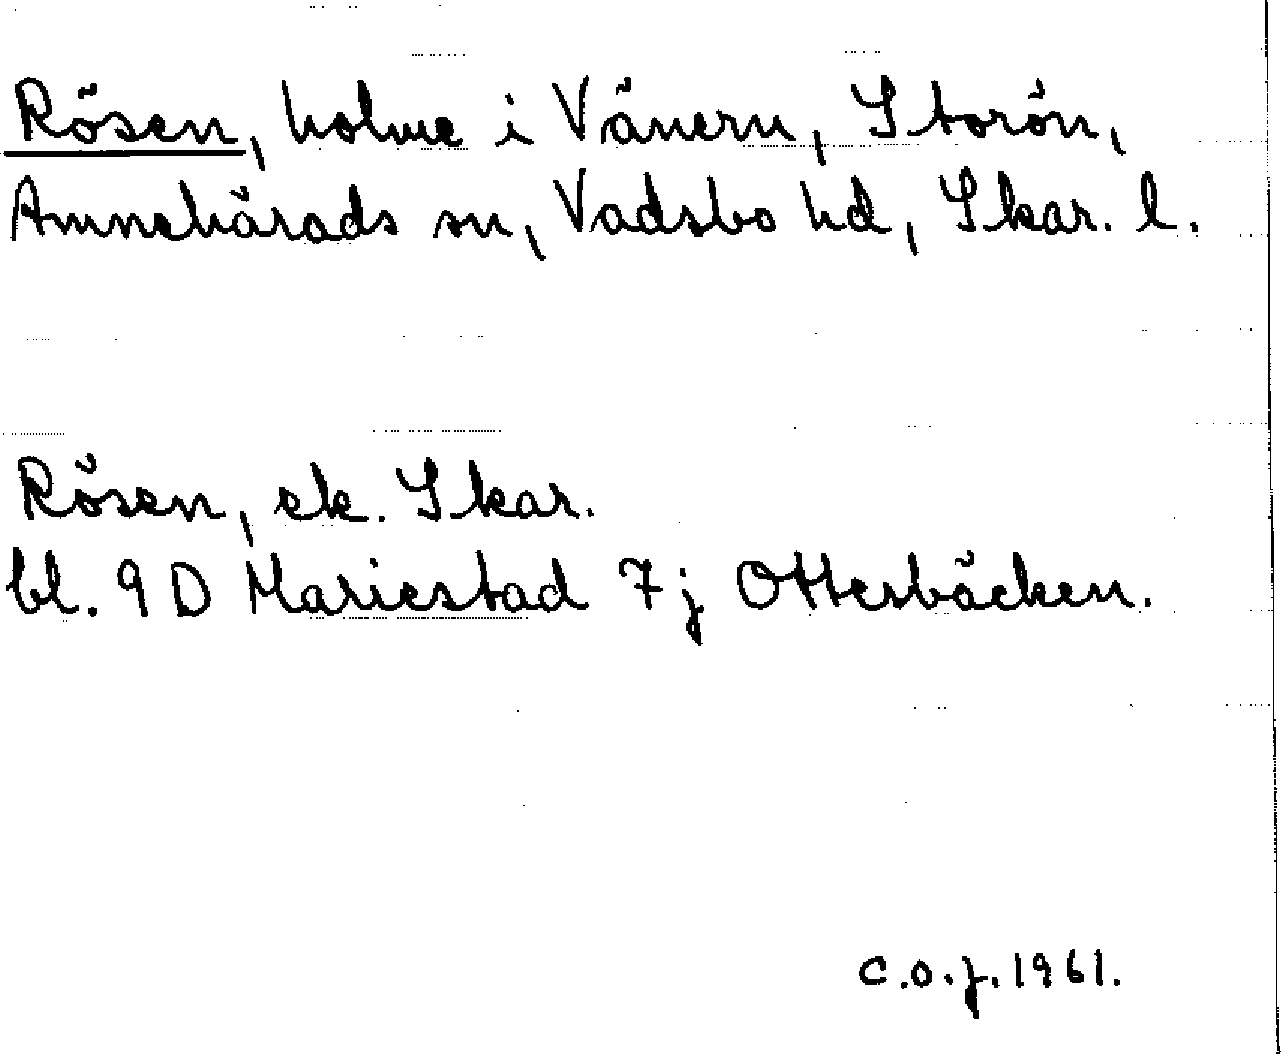 Rösen, holme i Vänern, Storön,
Amnehärads sn, Vadsbo hd, Skar. l.
Rösen, ek. Skar.
bl. 9 D Mariestad 7 j Otterbäcken.
C.O.J. 1961.